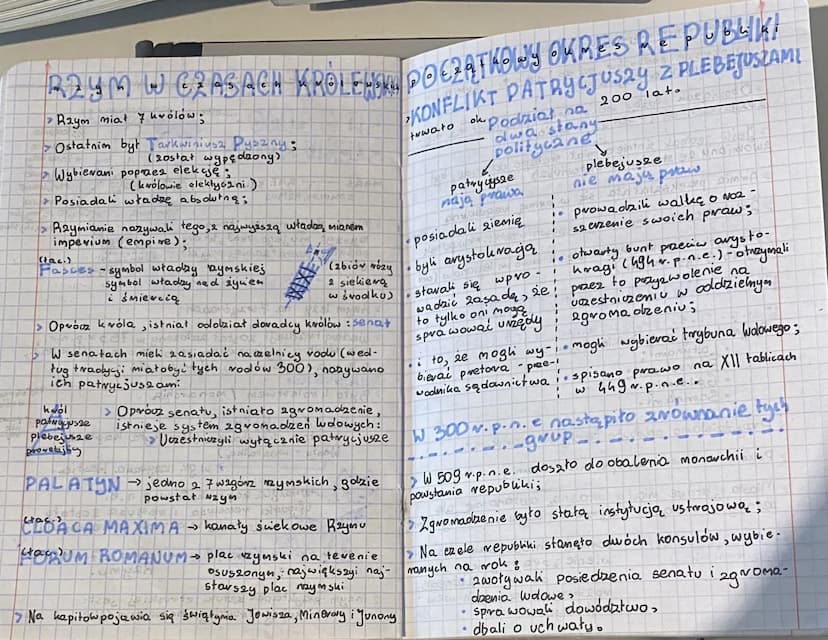 RZYM W CZASACH KRÓLEWSKICH
> Rzym miał 7 królów;
> Ostatnim był Tarkwiniusz Pyszny;
(został wypędzony)
> Wybierani poprzez elekcję;
(królowie elekcyjni)
> Posiadali władzę absolutną;
> Rzymianie nazywali tego, z najwyższą władzą mianem
imperium (empire);
(łac.)
Fasces - symbol władzy rzymskiej
symbol władzy nad życiem
i śmiercią
(zbiór rózg
z siekierą
w środku)
> Oprócz króla, istniał oddział doradcy królów: senat
> W senatach mieli zasiadać naczelnicy rodu (wed-
ług tradycji miało być tych rodów 300), nazywano
ich patrycjuszami
król
patrycjusze
plebejusze
proletariusze
> Oprócz senatu, istniało zgromadzenie,
istnieje system zgromadzeń ludowych:
> Uczestniczyli wyłącznie patrycjusze
PALATYN → jedno z 7 wzgórz rzymskich, gdzie
powstał rzym
(łac.)
CLOACA MAXIMA → kanały ściekowe Rzymu
(łac.)
FORUM ROMANUM → plac rzymski na terenie
osuszonym, największy naj-
starszy plac rzymski
> Na kapitol pojawia się świątynia Jowisza, Minerwy i Junony
POCZĄTKOWY OKRES REPUBLIKI
KONFLIKT PATRYCJUSZY Z PLEBEJUSZAMI
> trwało ok. 200 lat.
Podział na
dwa stany
polityczne
patrycjusze
mają prawa
• posiadali ziemię
• byli arystokracją
• starali się wpro-
wadzić zasadę, że
to tylko oni mogą
sprawować urzędy
• i to, że mogli wy-
bierać pretora - prze-
wodnika sądownictwa
plebejusze
nie mają praw
• prowadzili walkę o roz-
szerzenie swoich praw;
• otwarty bunt przeciw arysto-
kracji (494 r.p.n.e.) - otrzymali
przez to przyzwolenie na
uczestniczeniu w oddzielnym
zgromadzeniu;
• mogli wybierać trybuna ludowego;
• spisano prawo na XII tablicach
w 449 r.p.n.e..
W 300 r.p.n.e nastąpiło zrównanie tych
grup
> W 509 r.p.n.e. doszło do obalenia monarchii i
powstania republiki;
> Zgromadzenie było stałą instytucją ustrojową;
> Na czele republiki stanęło dwóch konsulów, wybie-
ranych na rok:
• zwoływali posiedzenia senatu i zgroma-
dzenia ludowe,
• sprawowali dowództwo,
• dbali o uchwały.